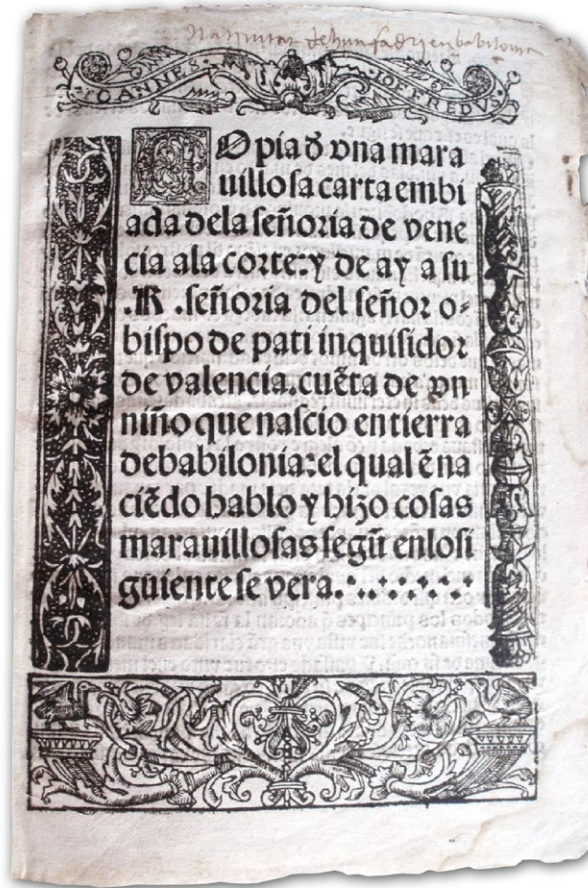 Natiuitat de hun fadri en babilonia
IOANNES. IOFFREDVS.
COpia ð vna mara
uillosa carta embi
ada dela señoria de vene
cia ala corte:y de ay a su
.R .señoria del señor o-
bispo de pati inquisidor
de valencia.cuẽta de vn
niño que nascio en tierra
debabilonia:el qual ẽ na
ciẽdo hablo y hizo cosas
marauillosas segũ enlosi
guiente se vera.